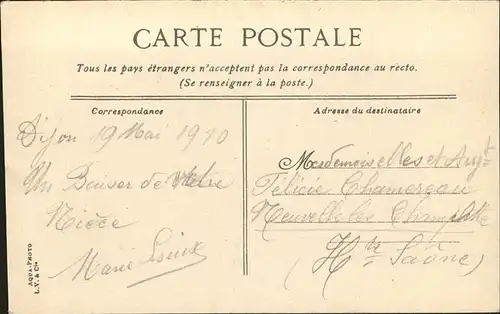 CARTE POSTALE
Tous les pays étrangers n'acceptent pas la correspondance au recto.
(Se renseigner à la poste.)
Correspondance
Dijon 19 Mai 1910
Un Baiser de votre
Nièce
Marie
AQUA-PHOTO
L. V. & Cie
Adresse du destinataire
Mesdemoiselles et Aug
Félicie Chamereau
Neuvelle les Champlitte
(Hte Saône)